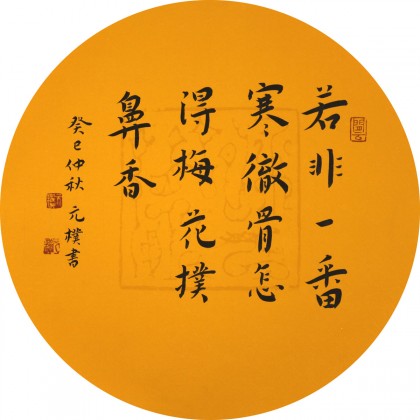 若非一番
寒徹骨怎
得梅花撲
鼻香
癸巳仲秋
元樸書